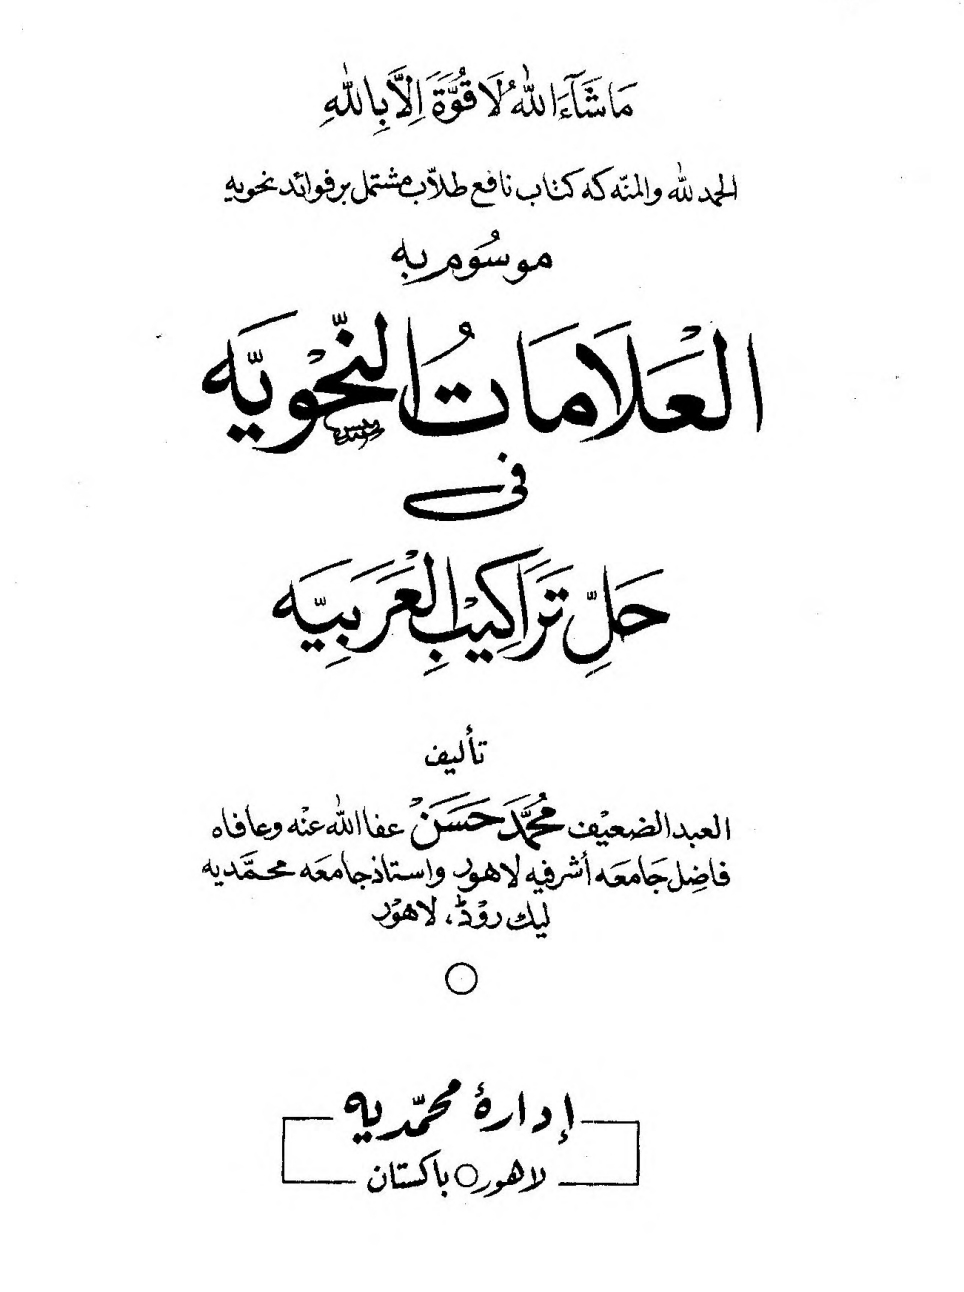 مَا شَآءَ اللّٰهُ لَا قُوَّةَ اِلَّا بِاللّٰهِ
الحمد للہ والمنّہ کہ کتاب نافع طلّاب مشتمل بر فوائد نحویہ
موسُوم بہ
العَلَامَاتُ النّحْوِيَّه
فی
حَلِّ تَرَاكِيْبِ الْعَرَبِيَّه
تأليف
العبد الضعيْف مُحَمَّد حَسَنْ عفا اللّٰه عنْه وعافاه
فاضِل جَامعَه أشرفيه لاهور واستاذ جامعَه محمَّديه
لیك روْڈ، لاهوْر
إدارهٔ محمّديه
لاهور ○ باكستان